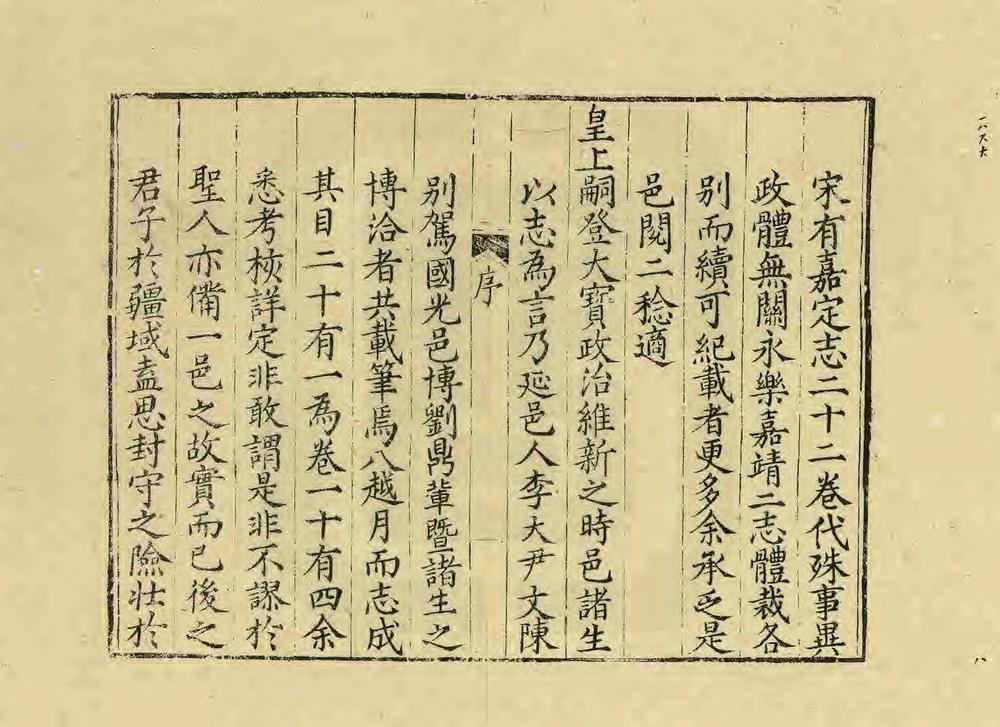 宋有嘉定志二十二卷代殊事異
政體無關永樂嘉靖二志體裁各
别而續可紀載者更多余承乏是
邑閱二稔適
皇上嗣登大寶政治維新之時邑諸生
以志為言乃延邑人李大尹文陳
序
别駕國光邑博劉鼎軰暨諸生之
博洽者共載筆焉八越月而志成
其目二十有一為卷一十有四余
悉考核詳定非敢謂是非不謬於
聖人亦備一邑之故實而已後之
君子於疆域盍思封守之險壮於